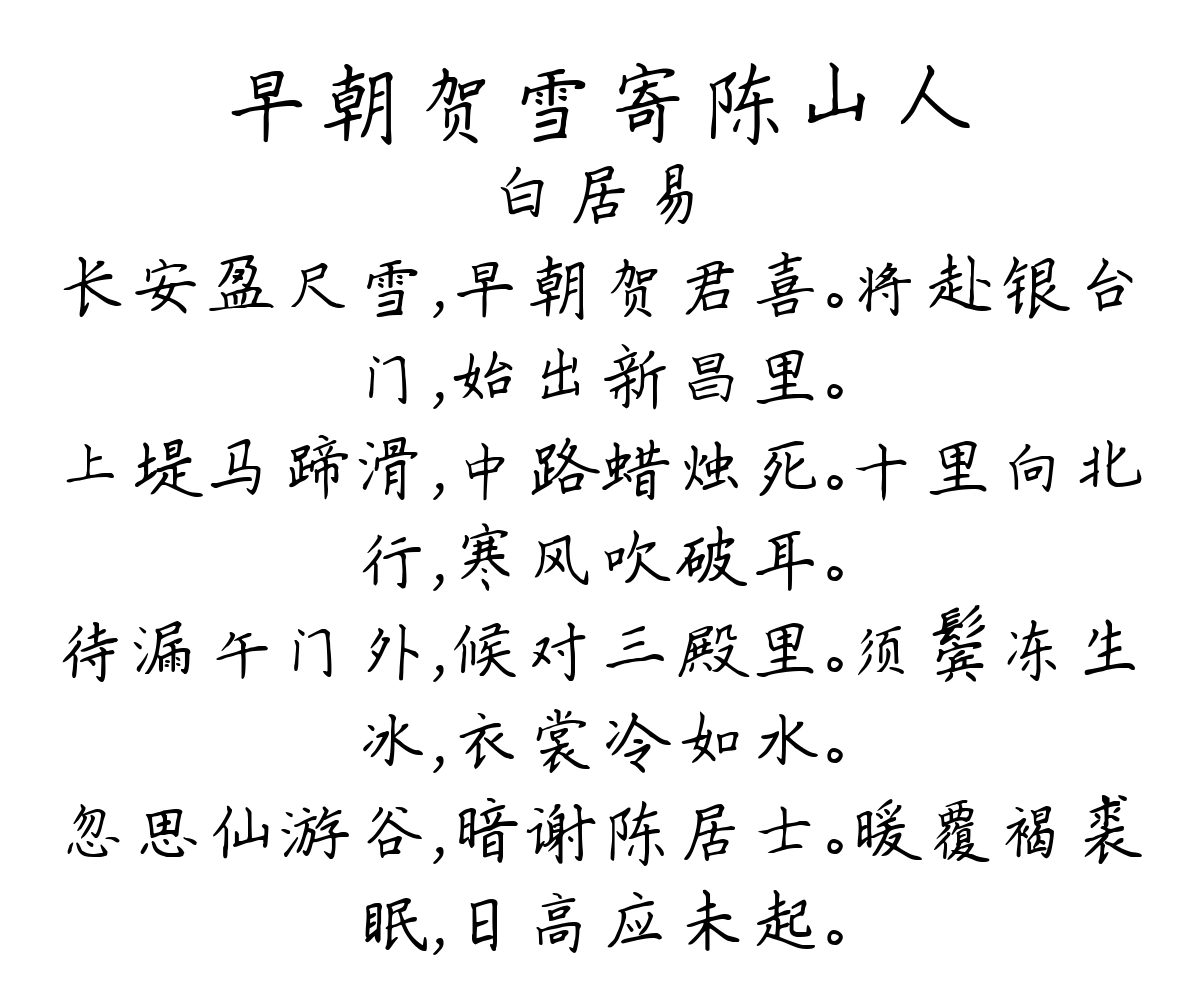 早朝贺雪寄陈山人
白居易
长安盈尺雪,早朝贺君喜。将赴银台
门,始出新昌里。
上堤马蹄滑,中路蜡烛死。十里向北
行,寒风吹破耳。
待漏午门外,候对三殿里。须鬓冻生
冰,衣裳冷如水。
忽思仙游谷,暗谢陈居士。暖覆褐裘
眠,日高应未起。